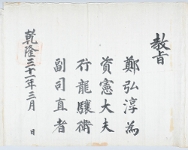 敎旨
鄭弘淳爲
資憲大夫
行龍驤衛
副司直者
乾隆三十一年三月 日